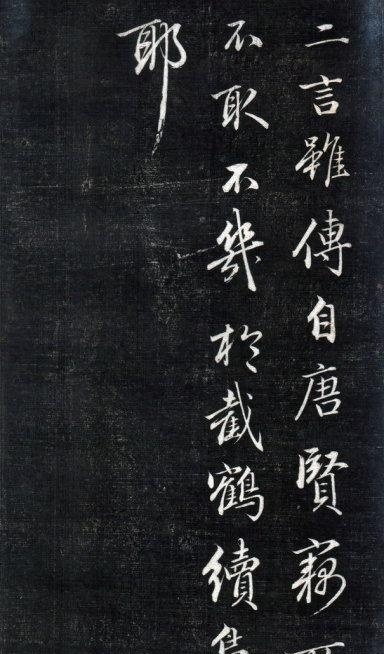 二言雖傳自唐賢竊
不取不幾於截鶴續
耶